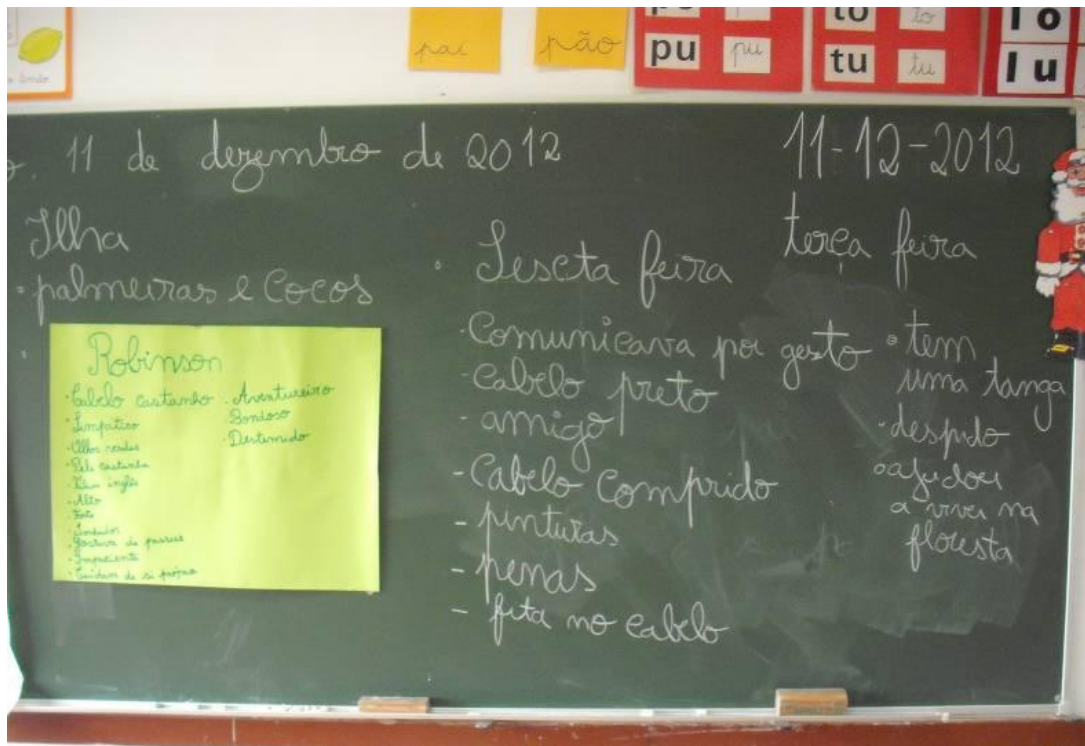 limão
pai
pão
pu pu
to to
tu tu
lo
lu
11 de dezembro de 2012
11-12-2012
terça feira
Ilha
• palmeiras e cocos
Robinson
• Cabelo castanho
• Simpático
• Olhos verdes
• Pele castanha
• Falava inglês
• Alto
• Forte
• Sonhador
• Gostava de passear
• Impaciente
• Cuidava de si próprio
• Aventureiro
• Bondoso
• Destemido
• Sescta feira
- Comunicava por gesto
- Cabelo preto
- amigo
- Cabelo Comprido
- pinturas
- penas
- fita no cabelo
• tem
uma tanga
• despido
• ajudou
a viver na
floresta